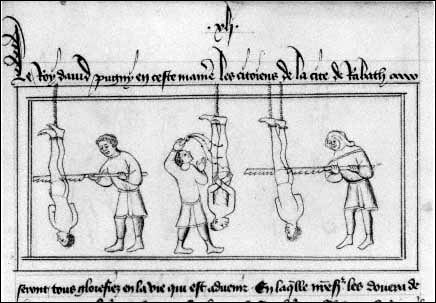 xlj
Le Roy david pugny en ceste manie les citoiens de la cite de Rabath
seront tous glorefiez en la vie qui est advenir. En laqlle les douera de